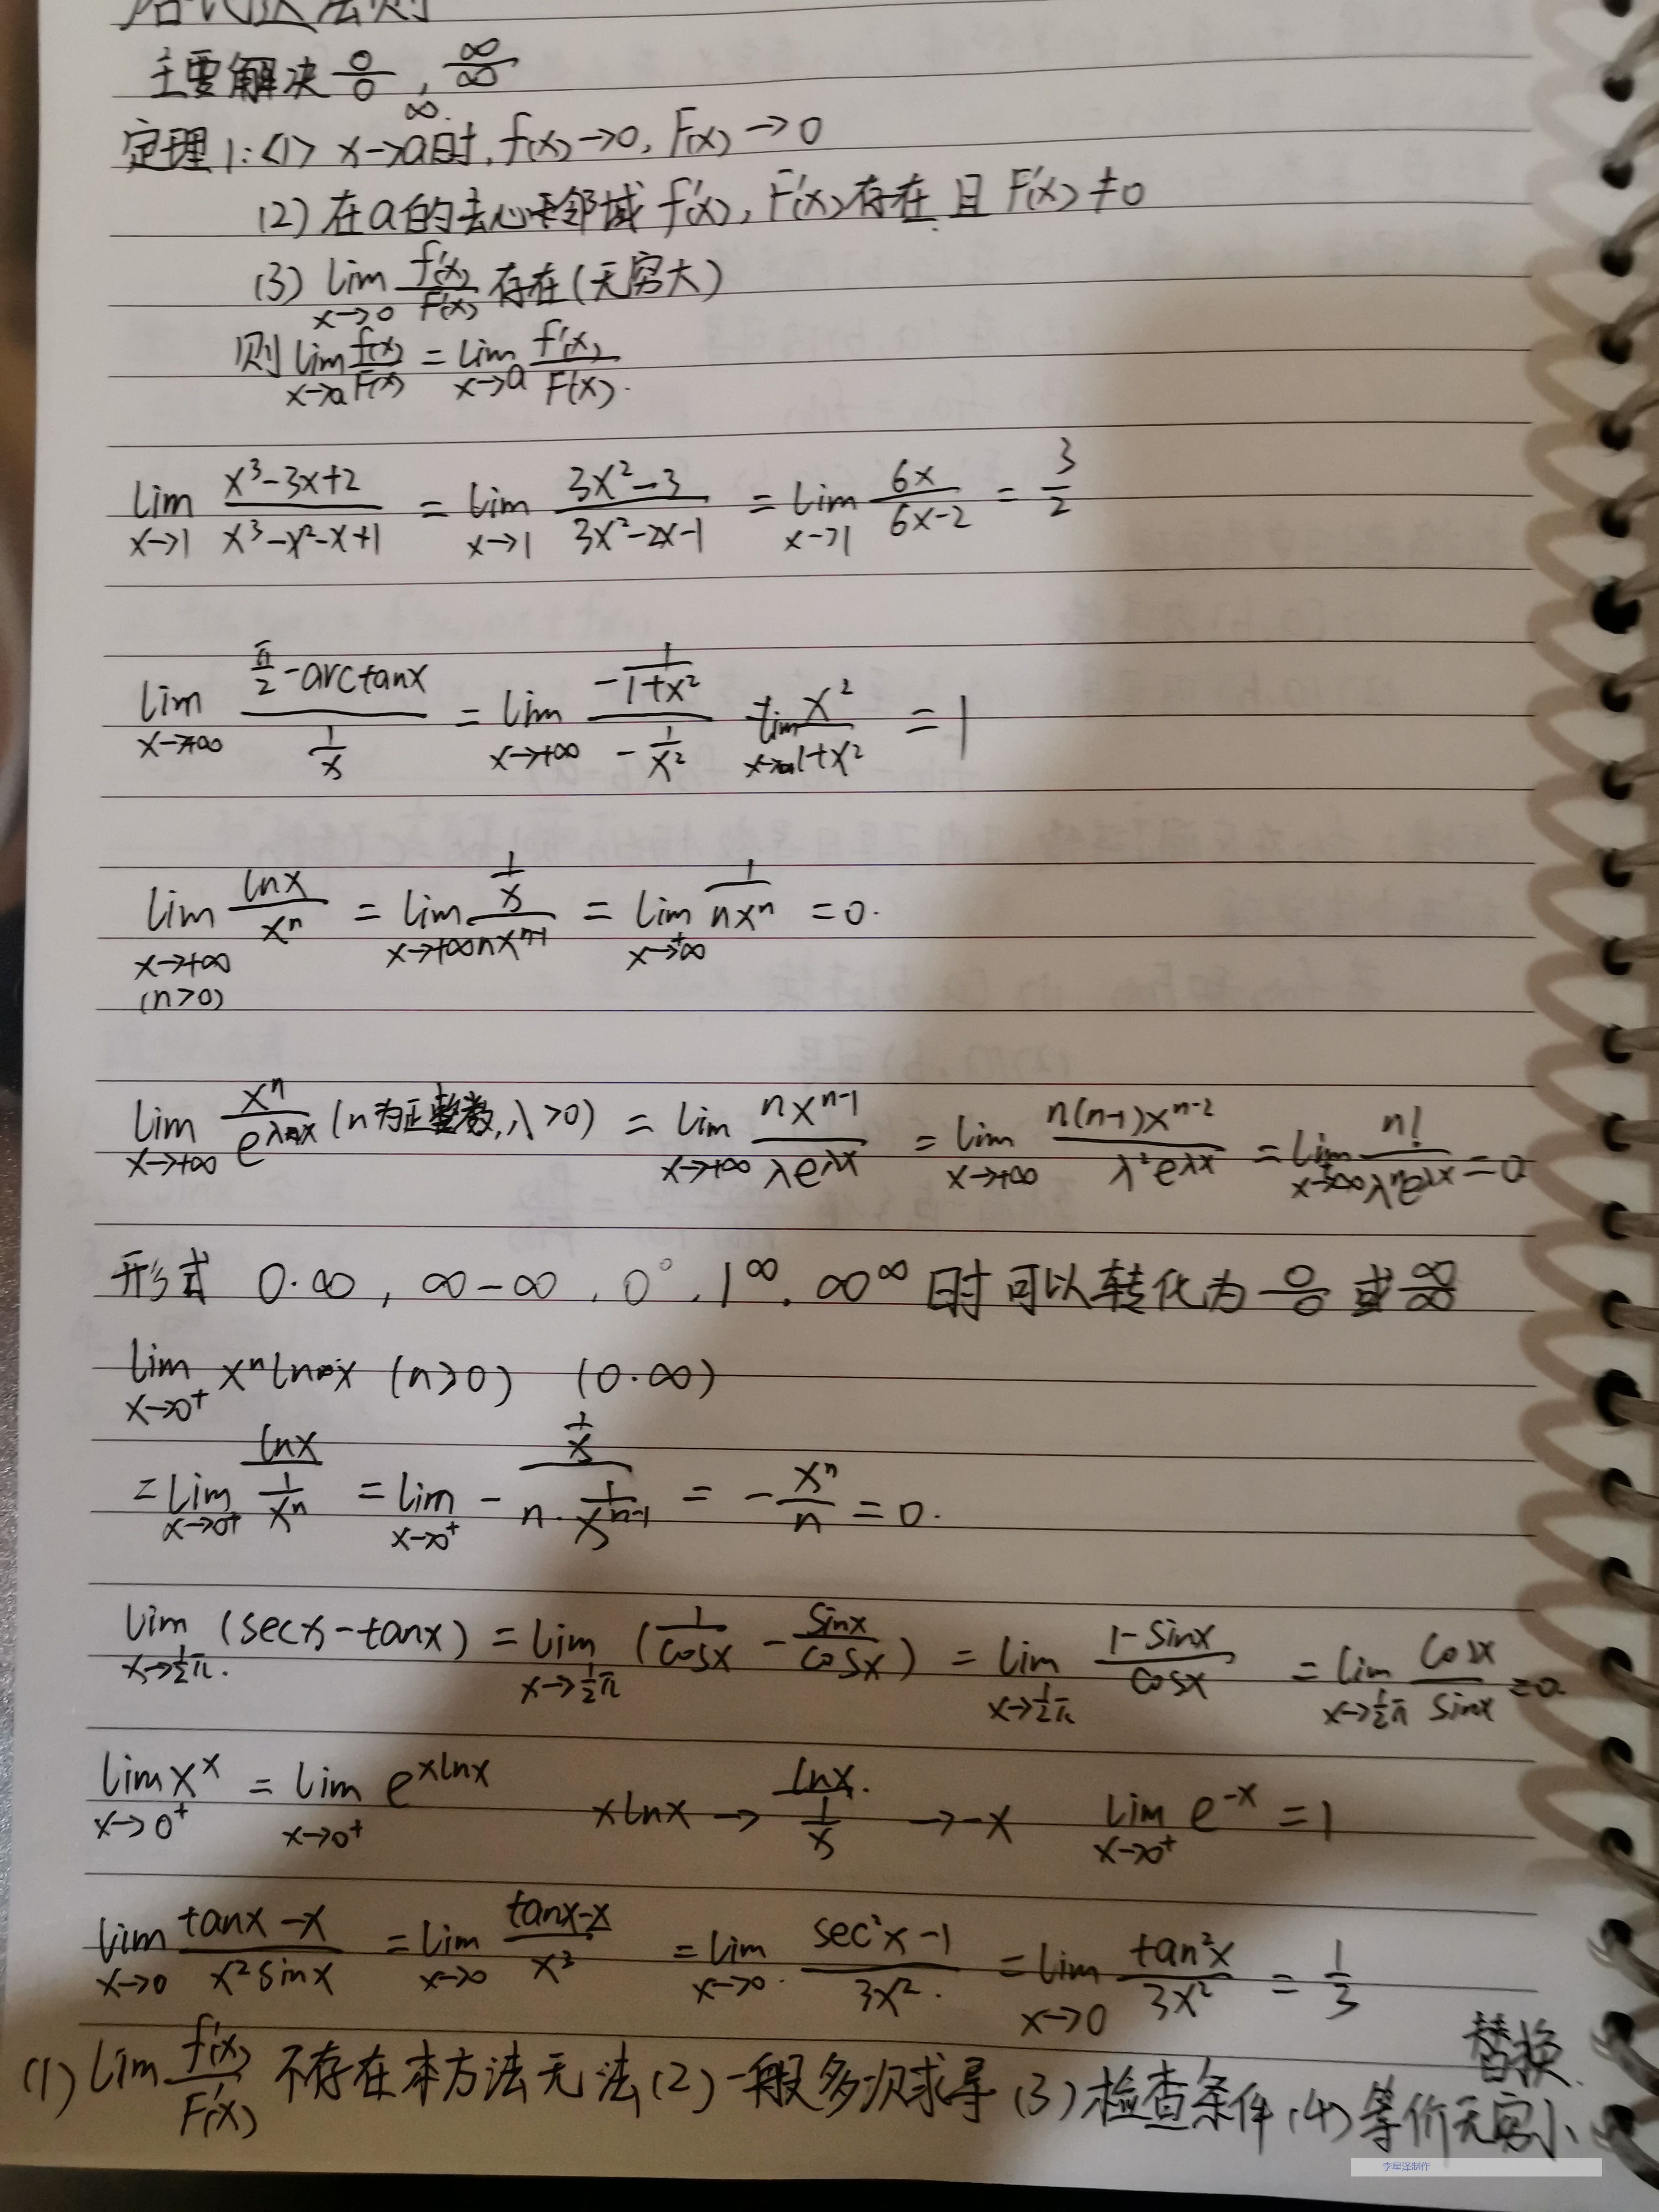 洛必达法则
主要解决 0/0 , ∞/∞
∞
定理1:<1> x→a时, f(x)→0, F(x)→0
(2) 在a的去心邻域 f'(x), F'(x)存在 且 F'(x)≠0
(3) lim x→0 f'(x)/F'(x) 存在(无穷大)
则 lim x→a f(x)/F(x) = lim x→a f'(x)/F'(x).
lim x→1 (x³-3x+2)/(x³-x²-x+1) = lim x→1 (3x²-3)/(3x²-2x-1) = lim x→1 6x/(6x-2) = 3/2
lim x→+∞ (π/2-arctanx)/(1/x) = lim x→+∞ (-1/(1+x²))/(-1/x²) lim x→∞ x²/(1+x²) = 1
lim x→+∞ (n>0) lnx/xⁿ = lim x→+∞ (1/x)/(nxⁿ⁻¹) = lim x→+∞ 1/(nxⁿ) = 0.
lim x→+∞ xⁿ/e^(λx) (n为正整数, λ>0) = lim x→+∞ nxⁿ⁻¹/(λe^(λx)) = lim x→+∞ n(n-1)xⁿ⁻²/(λ²e^(λx)) = lim x→+∞ n!/(λⁿe^(λx)) = 0
形式 0·∞, ∞-∞, 0⁰, 1^∞, ∞^∞ 时可以转化为 0/0 或 ∞/∞
lim x→0⁺ xⁿlnx (n>0) (0·∞)
= lim x→0⁺ lnx/(1/xⁿ) = lim x→0⁺ - (1/x)/(n·1/xⁿ⁻¹) = -xⁿ/n = 0.
lim x→½π. (secx-tanx) = lim x→½π (1/cosx - sinx/cosx) = lim x→½π (1-sinx)/cosx = lim x→½π cosx/sinx = 0.
lim x→0⁺ xˣ = lim x→0⁺ e^(xlnx) xlnx → lnx/(1/x) → -x lim x→0⁺ e^(-x) = 1
lim x→0 (tanx-x)/(x²sinx) = lim x→0 (tanx-x)/x³ = lim x→0. (sec²x-1)/3x². = lim x→0 tan²x/3x² = 1/3
(1) lim f'(x)/F'(x) 不存在本方法无法 (2) 一般多次求导 (3) 检查条件 (4) 等价无穷小
替换.
李星泽制作